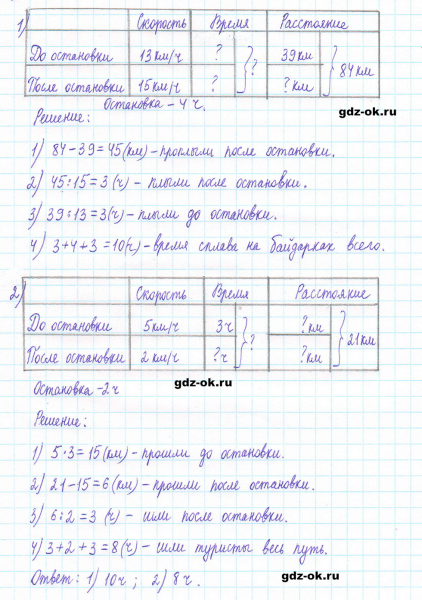 1) Скорость Время Расстояние
До остановки 13 км/ч ? 39 км
? 84 км
После остановки 15 км/ч ? ? км
Остановка – 4 ч.
gdz-ok.ru
Решение:
1) 84 – 39 = 45 (км) – проплыли после остановки.
2) 45 : 15 = 3 (ч) – плыли после остановки.
3) 39 : 13 = 3 (ч) – плыли до остановки.
4) 3 + 4 + 3 = 10 (ч) – время сплава на байдарках всего.
2) Скорость Время Расстояние
До остановки 5 км/ч 3 ч ? км
? 21 км
После остановки 2 км/ч ? ч ? км
gdz-ok.ru
Остановка – 2 ч
Решение:
1) 5 · 3 = 15 (км) – прошли до остановки.
2) 21 – 15 = 6 (км) – прошли после остановки.
3) 6 : 2 = 3 (ч) – шли после остановки.
4) 3 + 2 + 3 = 8 (ч) – шли туристы весь путь.
Ответ: 1) 10 ч ; 2) 8 ч.
gdz-ok.ru